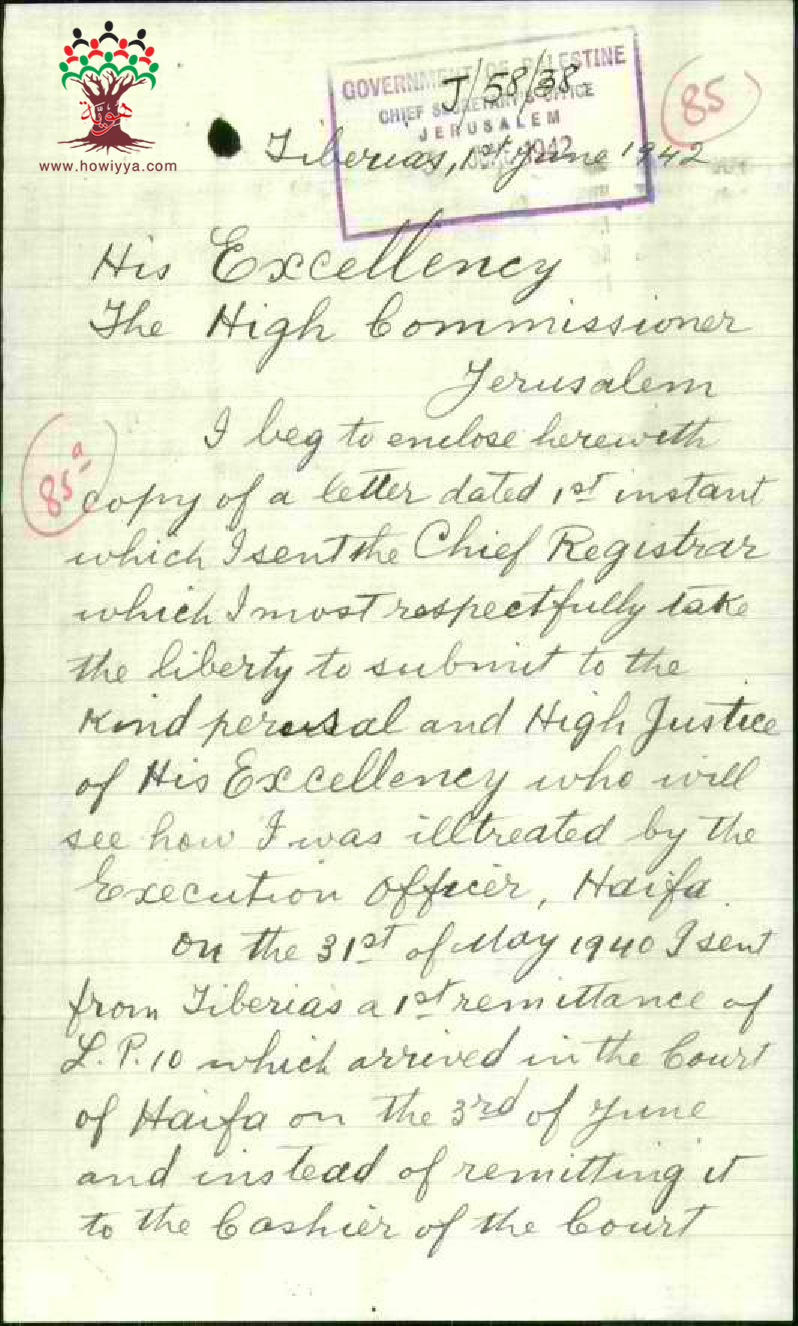 هويّة
www.howiyya.com
GOVERNMENT OF PALESTINE
J/58/38.
CHIEF SECRETARY'S OFFICE
JERUSALEM
1942
85
Tiberias, 1st June 1942
His Excellency
The High Commissioner
Jerusalem
I beg to enclose herewith
85a
copy of a letter dated 1st instant
which I sent the Chief Registrar
which I most respectfully take
the liberty to submit to the
Kind perusal and High Justice
of His Excellency who will
see how I was illtreated by the
Execution Officer, Haifa.
On the 31st of May 1940 I sent
from Tiberias a 1st remittance of
L.P.10 which arrived in the Court
of Haifa on the 3rd of June
and instead of remitting it
to the Cashier of the Court